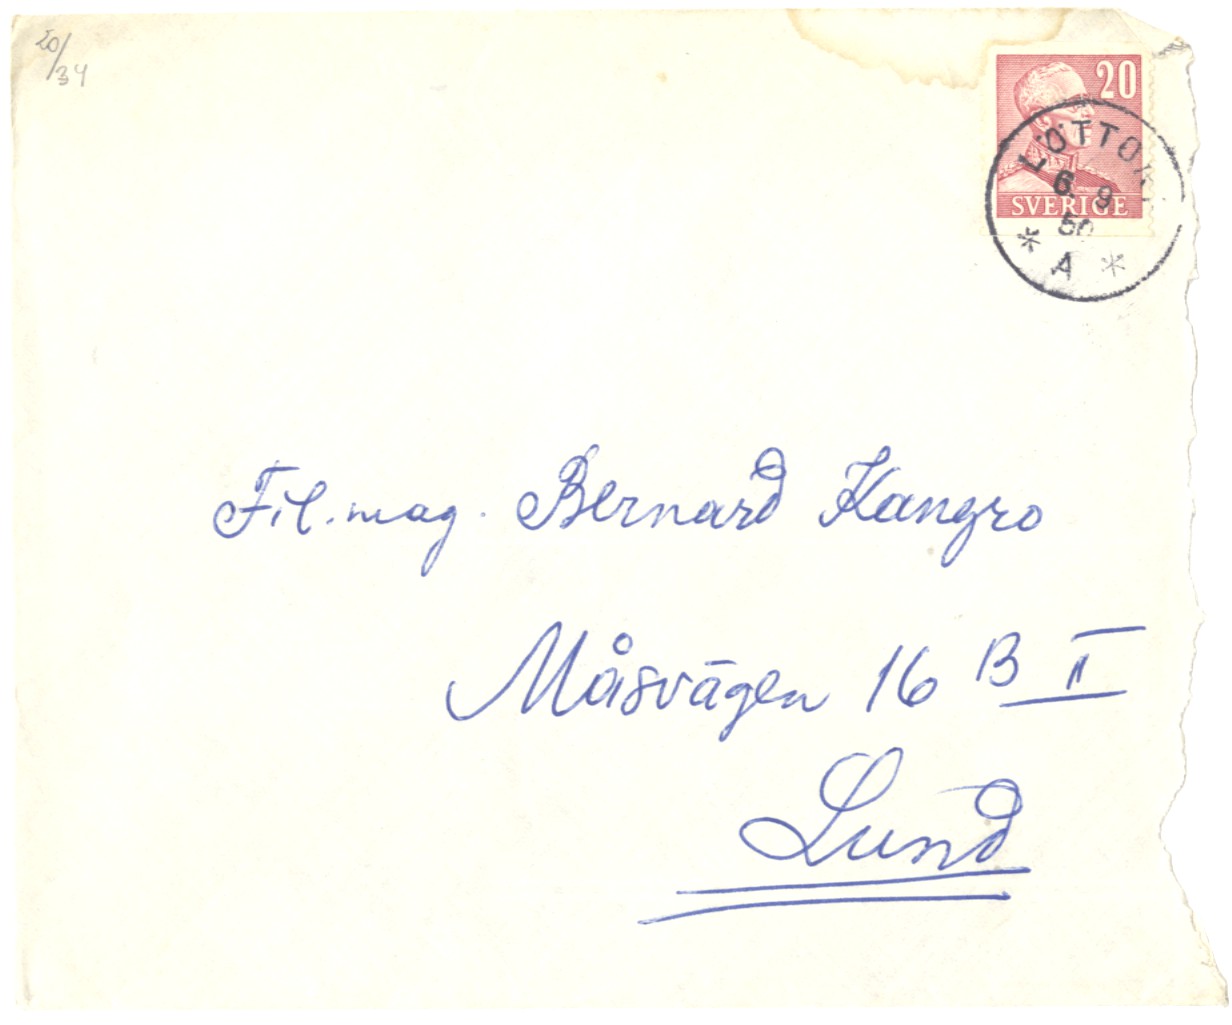 20/34
20
LÖTTOR
6. 9
50
SVERIGE
* A *
Fil. mag. Bernard Kangro
Måsvägen 16 B II
Lund